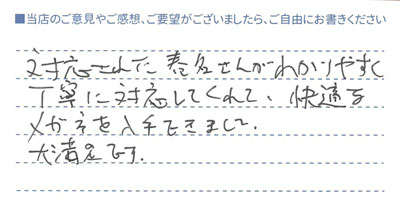 ■当店のご意見やご感想、ご要望がございましたら、ご自由にお書きください
対応された春名さんがわかりやすく
丁寧に対応してくれて、快適な
メガネを入手できまして.
大満足です.